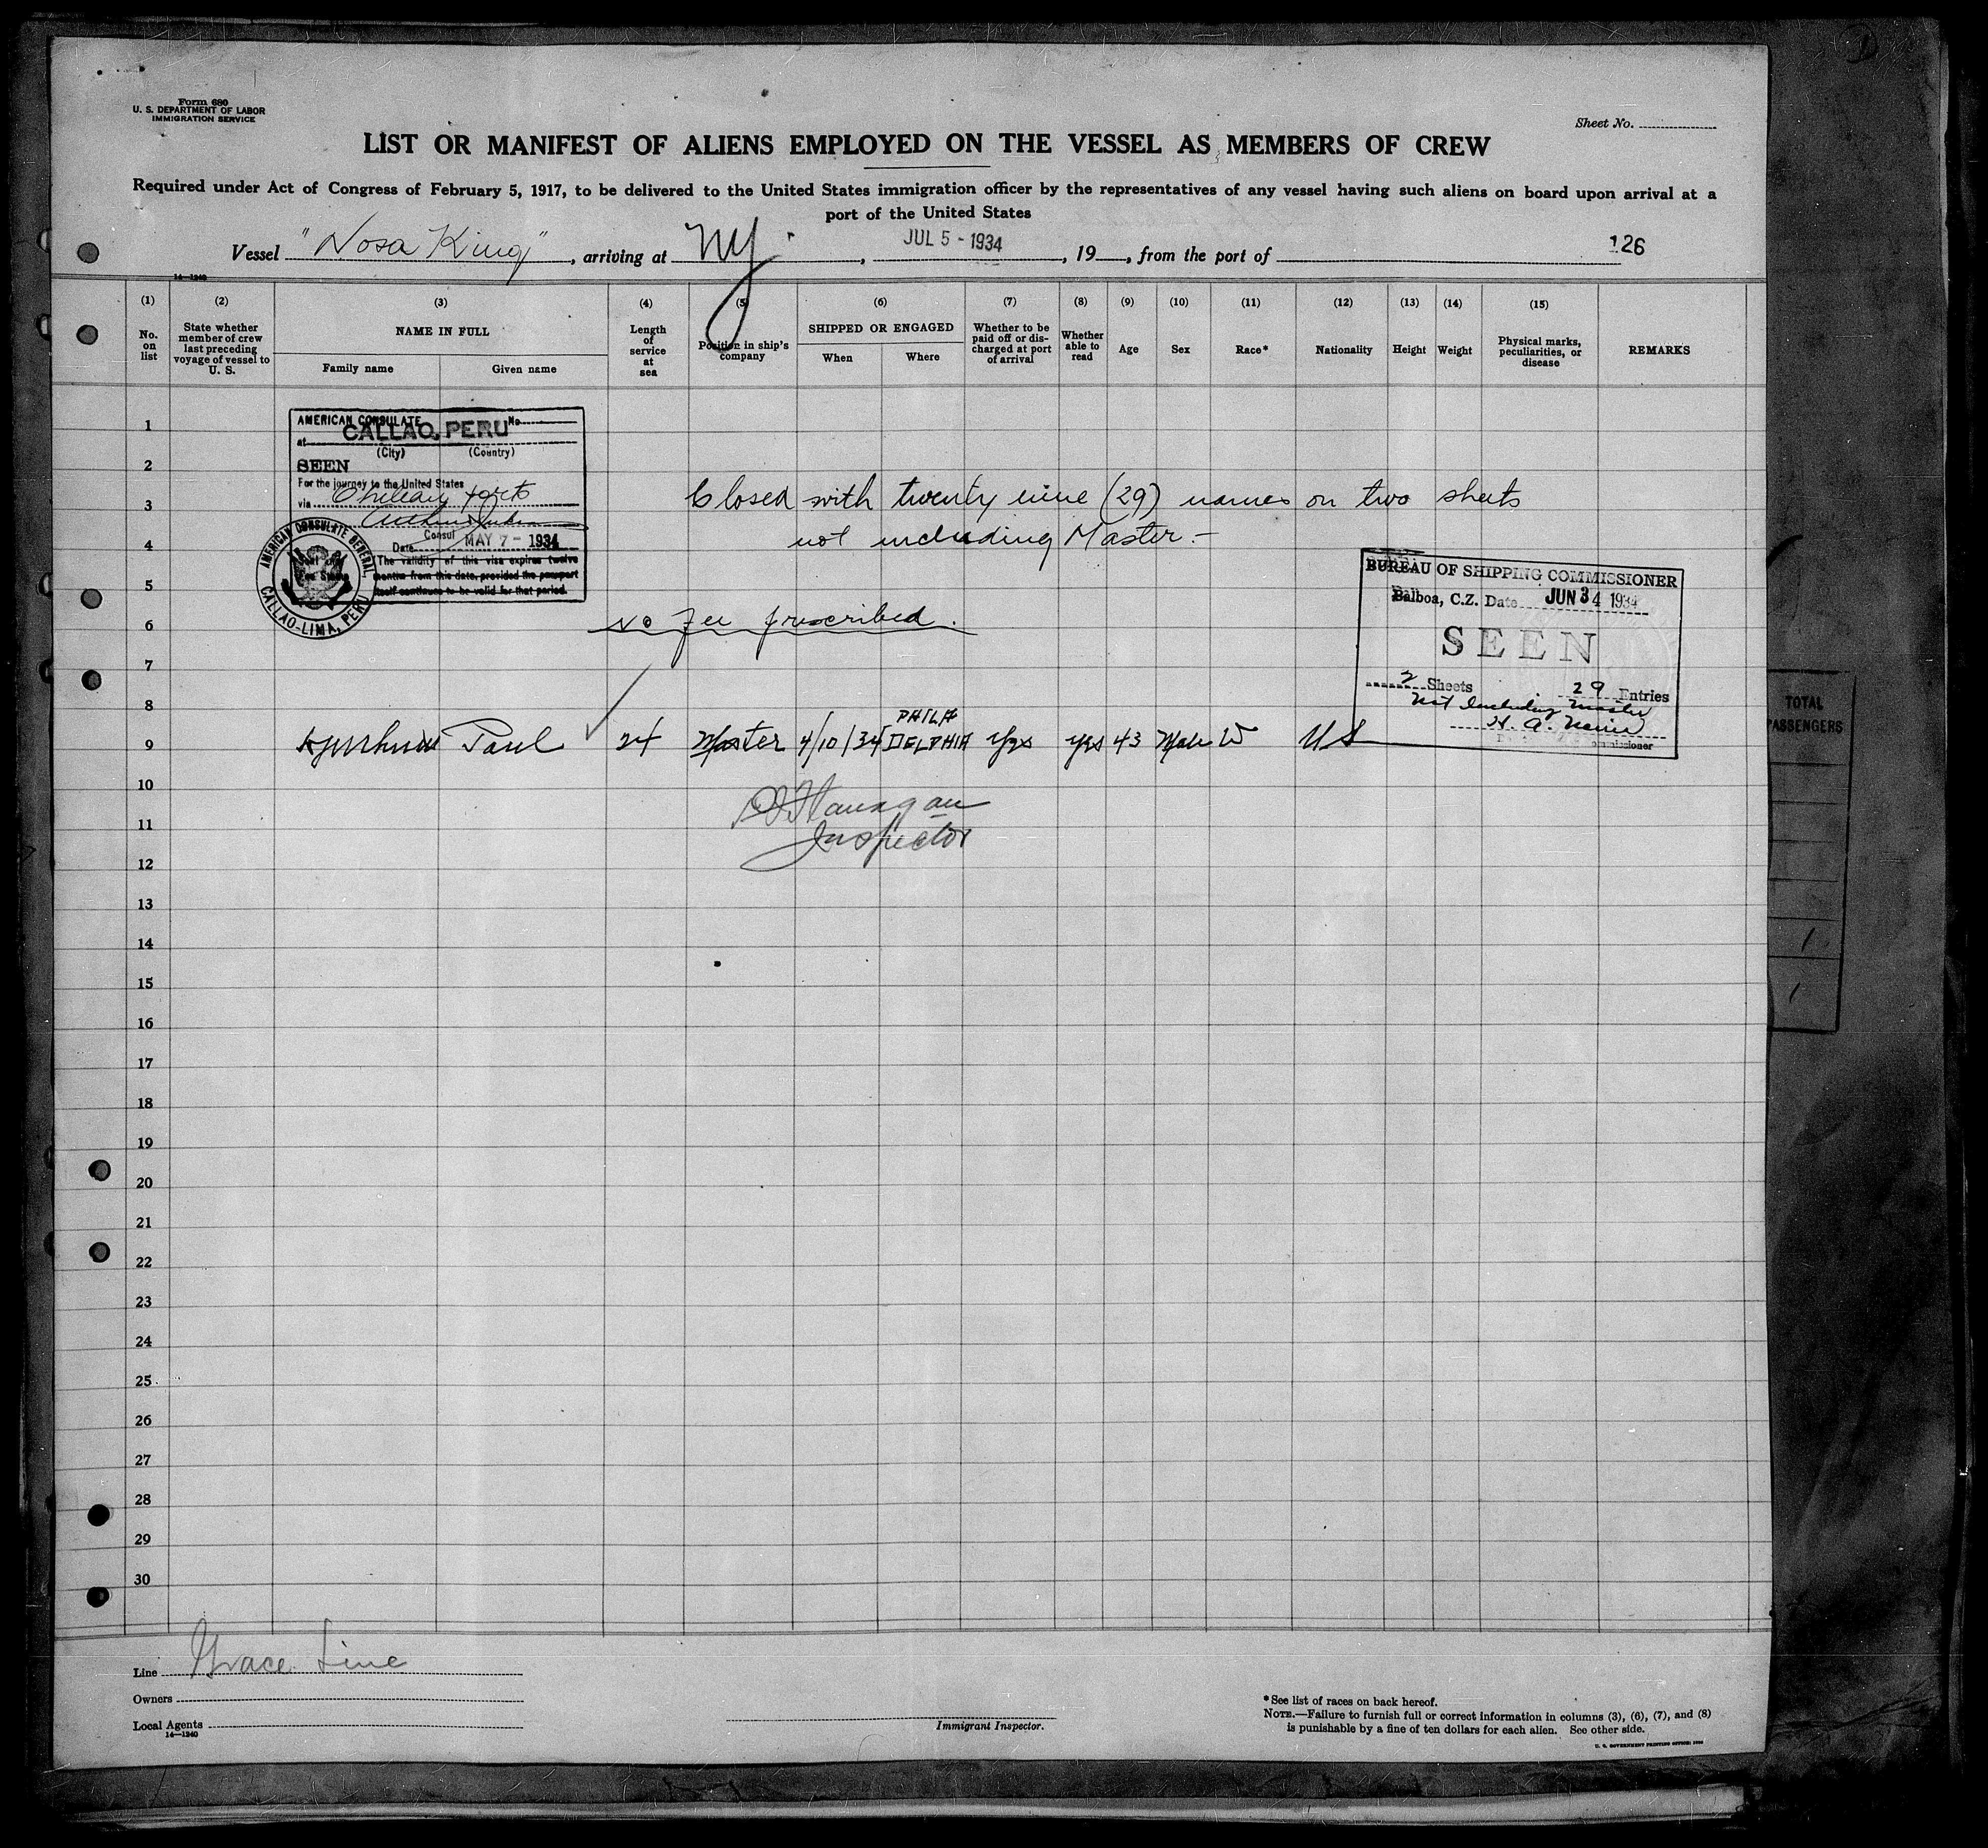 Form 680
U. S. DEPARTMENT OF LABOR
IMMIGRATION SERVICE
Sheet No.
LIST OR MANIFEST OF ALIENS EMPLOYED ON THE VESSEL AS MEMBERS OF CREW
Required under Act of Congress of February 5, 1917, to be delivered to the United States immigration officer by the representatives of any vessel having such aliens on board upon arrival at a
port of the United States
Vessel "Nosa King", arriving at NY, JUL 5 - 1934, 19, from the port of 126
14—1240
(1) (2) (3) (4) (5) (6) (7) (8) (9) (10) (11) (12) (13) (14) (15)
No. on list
State whether member of crew last preceding voyage of vessel to U. S.
NAME IN FULL
Family name
Given name
Length of service at sea
Position in ship's company
SHIPPED OR ENGAGED
When
Where
Whether to be paid off or discharged at port of arrival
Whether able to read
Age
Sex
Race*
Nationality
Height
Weight
Physical marks, peculiarities, or disease
REMARKS
AMERICAN CONSULATE No.
at CALLAO, PERU
(City) (Country)
SEEN
For the journey to the United States
via Chilean ports
Consul
Date MAY 7 - 1934
The validity of this visa expires twelve
months from this date, provided the passport
itself continues to be valid for that period.
AMERICAN CONSULATE GENERAL
CALLAO-LIMA, PERU
1
2
3 Closed with twenty nine (29) names on two sheets
4 not including Master.-
5
6 No fee prescribed.
7
8
BUREAU OF SHIPPING COMMISSIONER
Balboa, C.Z. Date JUN 34 1934
SEEN
2 Sheets 29 Entries
Not Including Master
H. A.
Commissioner
9 Paul 24 Master 4/10/34 PHILADELPHIA Yes yes 43 Male W US
10
Flanagan
11
Inspector
12
13
14
15
16
17
18
19
20
21
22
23
24
25
26
27
28
29
30
Line Grace Line
Owners
Local Agents
14—1240
Immigrant Inspector.
*See list of races on back hereof.
NOTE.—Failure to furnish full or correct information in columns (3), (6), (7), and (8)
is punishable by a fine of ten dollars for each alien. See other side.
U. S. GOVERNMENT PRINTING OFFICE:
TOTAL
PASSENGERS
1
1